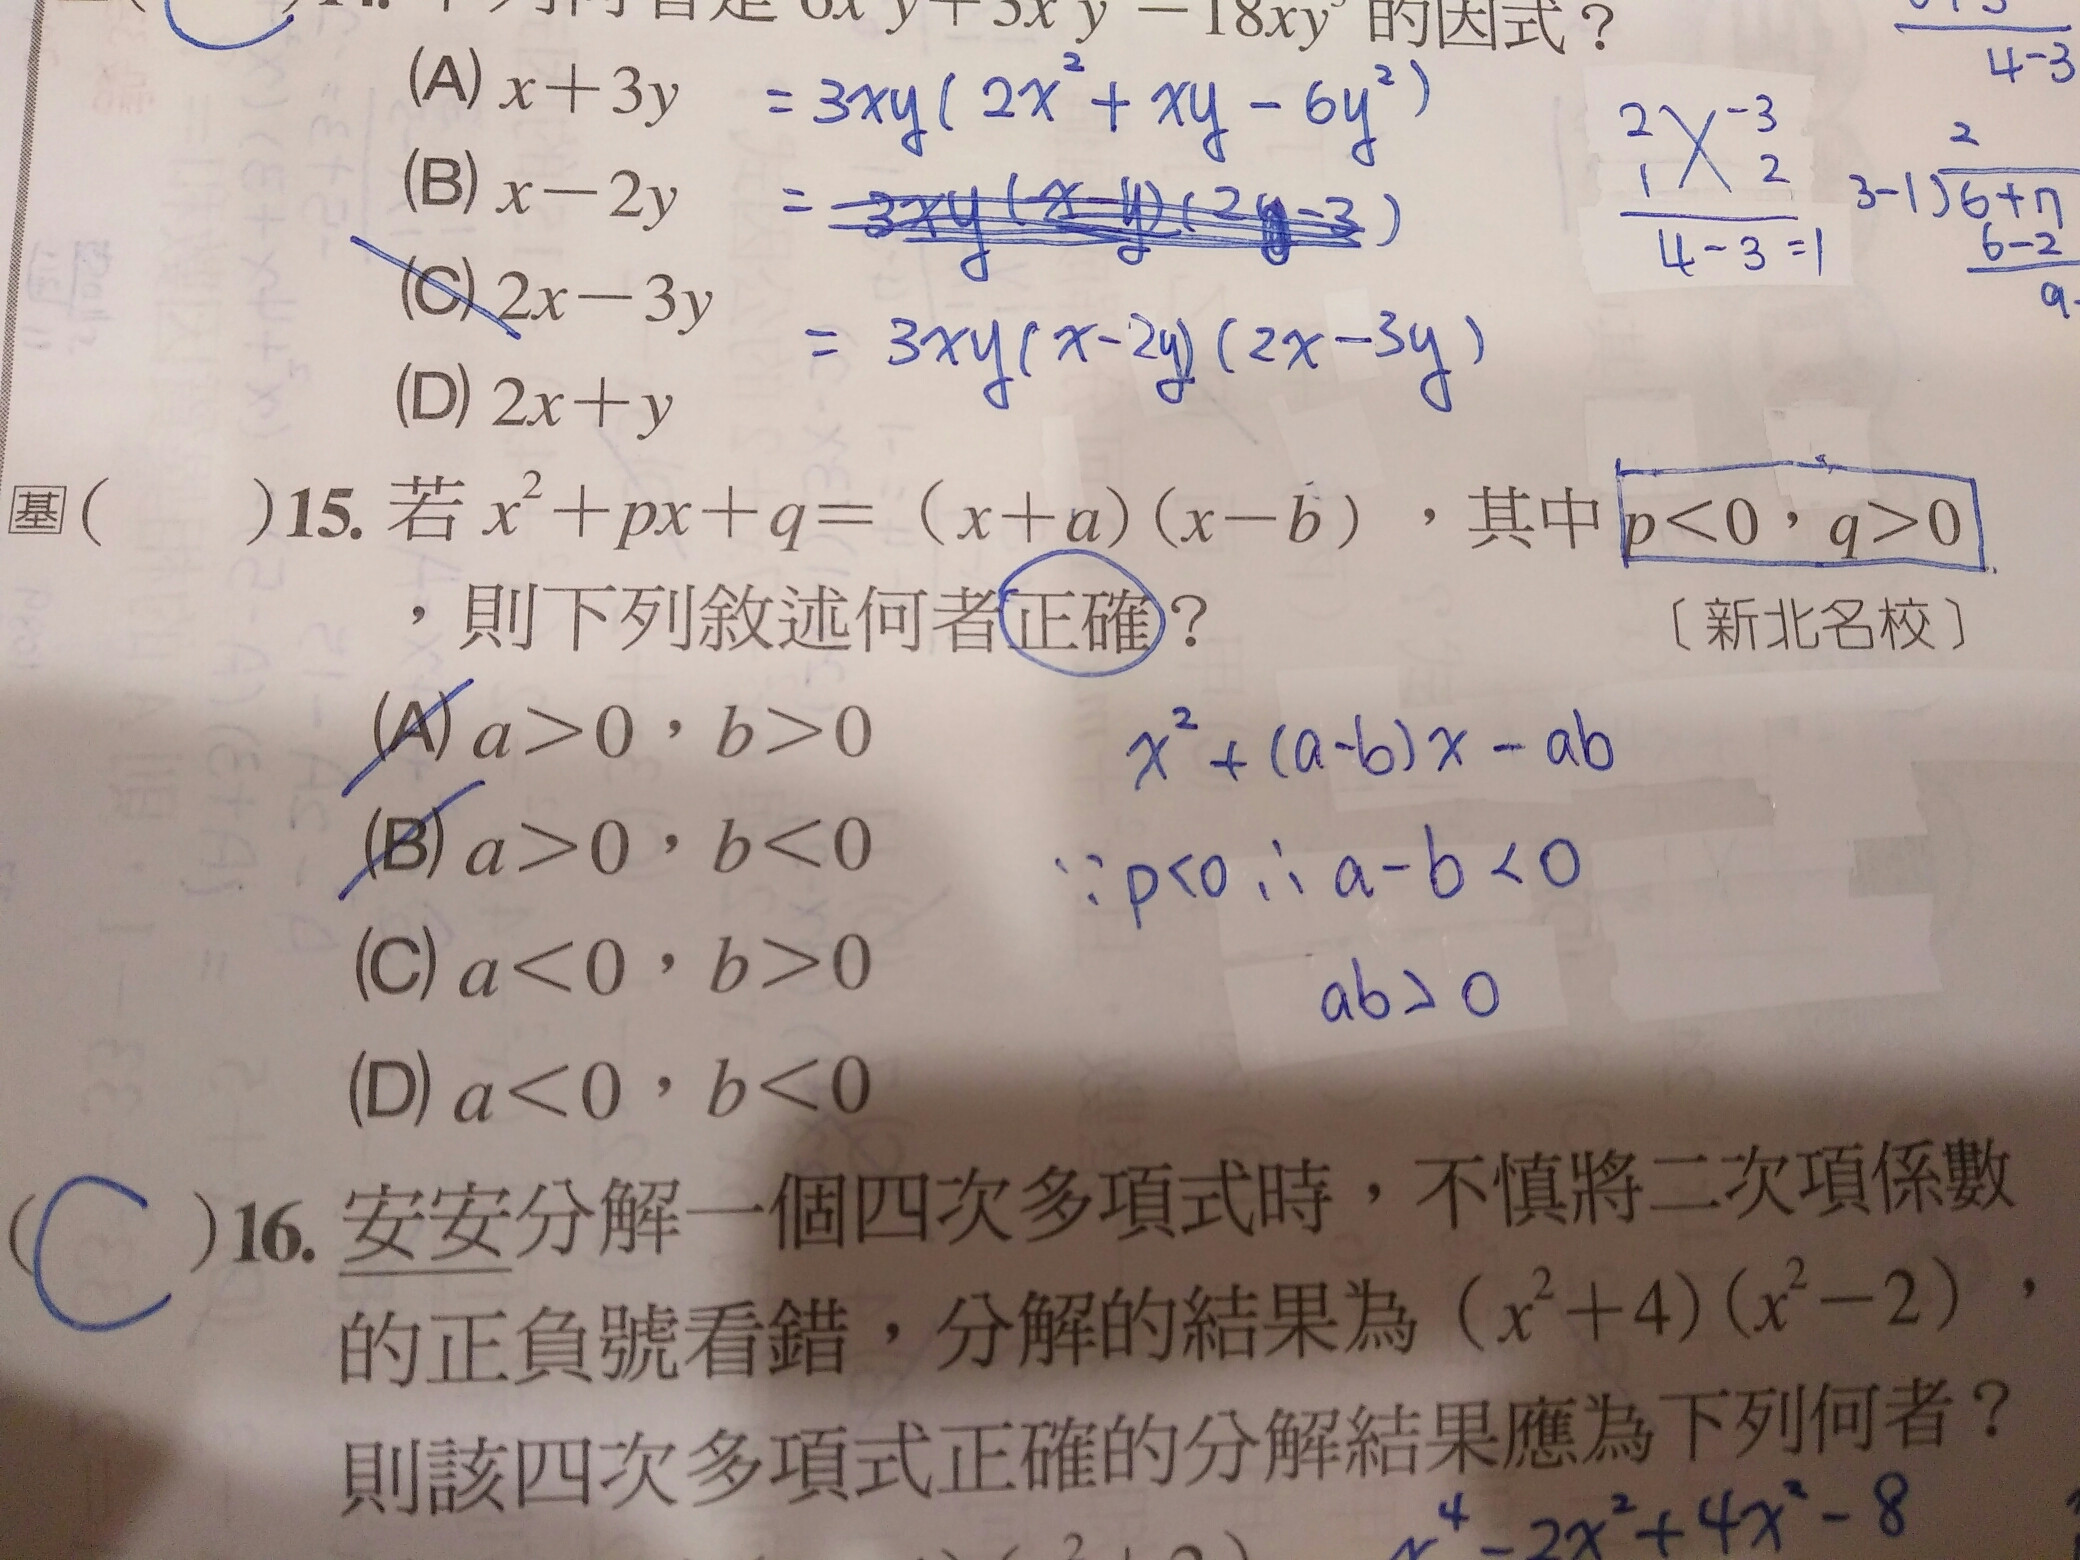 14. 下列何者是 6x³y+3x²y²−18xy³ 的因式？
(A) x+3y = 3xy( 2x² + xy − 6y² )
(B) x−2y = 3xy(x−y)(2y−3)
(C) 2x−3y = 3xy(x−2y)(2x−3y)
(D) 2x+y
4−3
2 −3
1 2
4−3=1
2
3−1)6+7
6−2
9
基( )15. 若 x²+px+q=（x+a）(x−b），其中 p<0，q>0
，則下列敘述何者正確？ 〔新北名校〕
(A) a>0，b>0
(B) a>0，b<0
(C) a<0，b>0
(D) a<0，b<0
x² + (a−b)x − ab
∵p<0 ∴ a−b<0
ab>0
( C )16. 安安分解一個四次多項式時，不慎將二次項係數
的正負號看錯，分解的結果為（x²+4）(x²−2），
則該四次多項式正確的分解結果應為下列何者？
x⁴−2x²+4x²−8